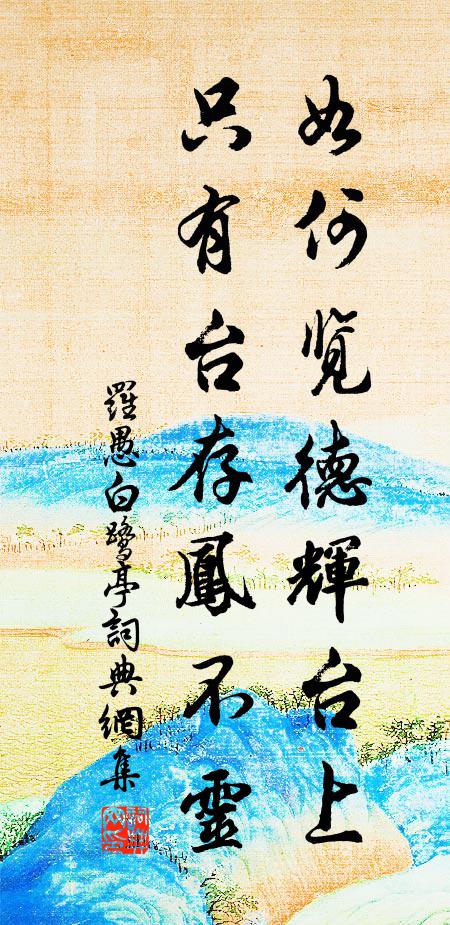 如何覽德輝台上
只有台存鳳不靈
羅愚白鷺亭詞典網集